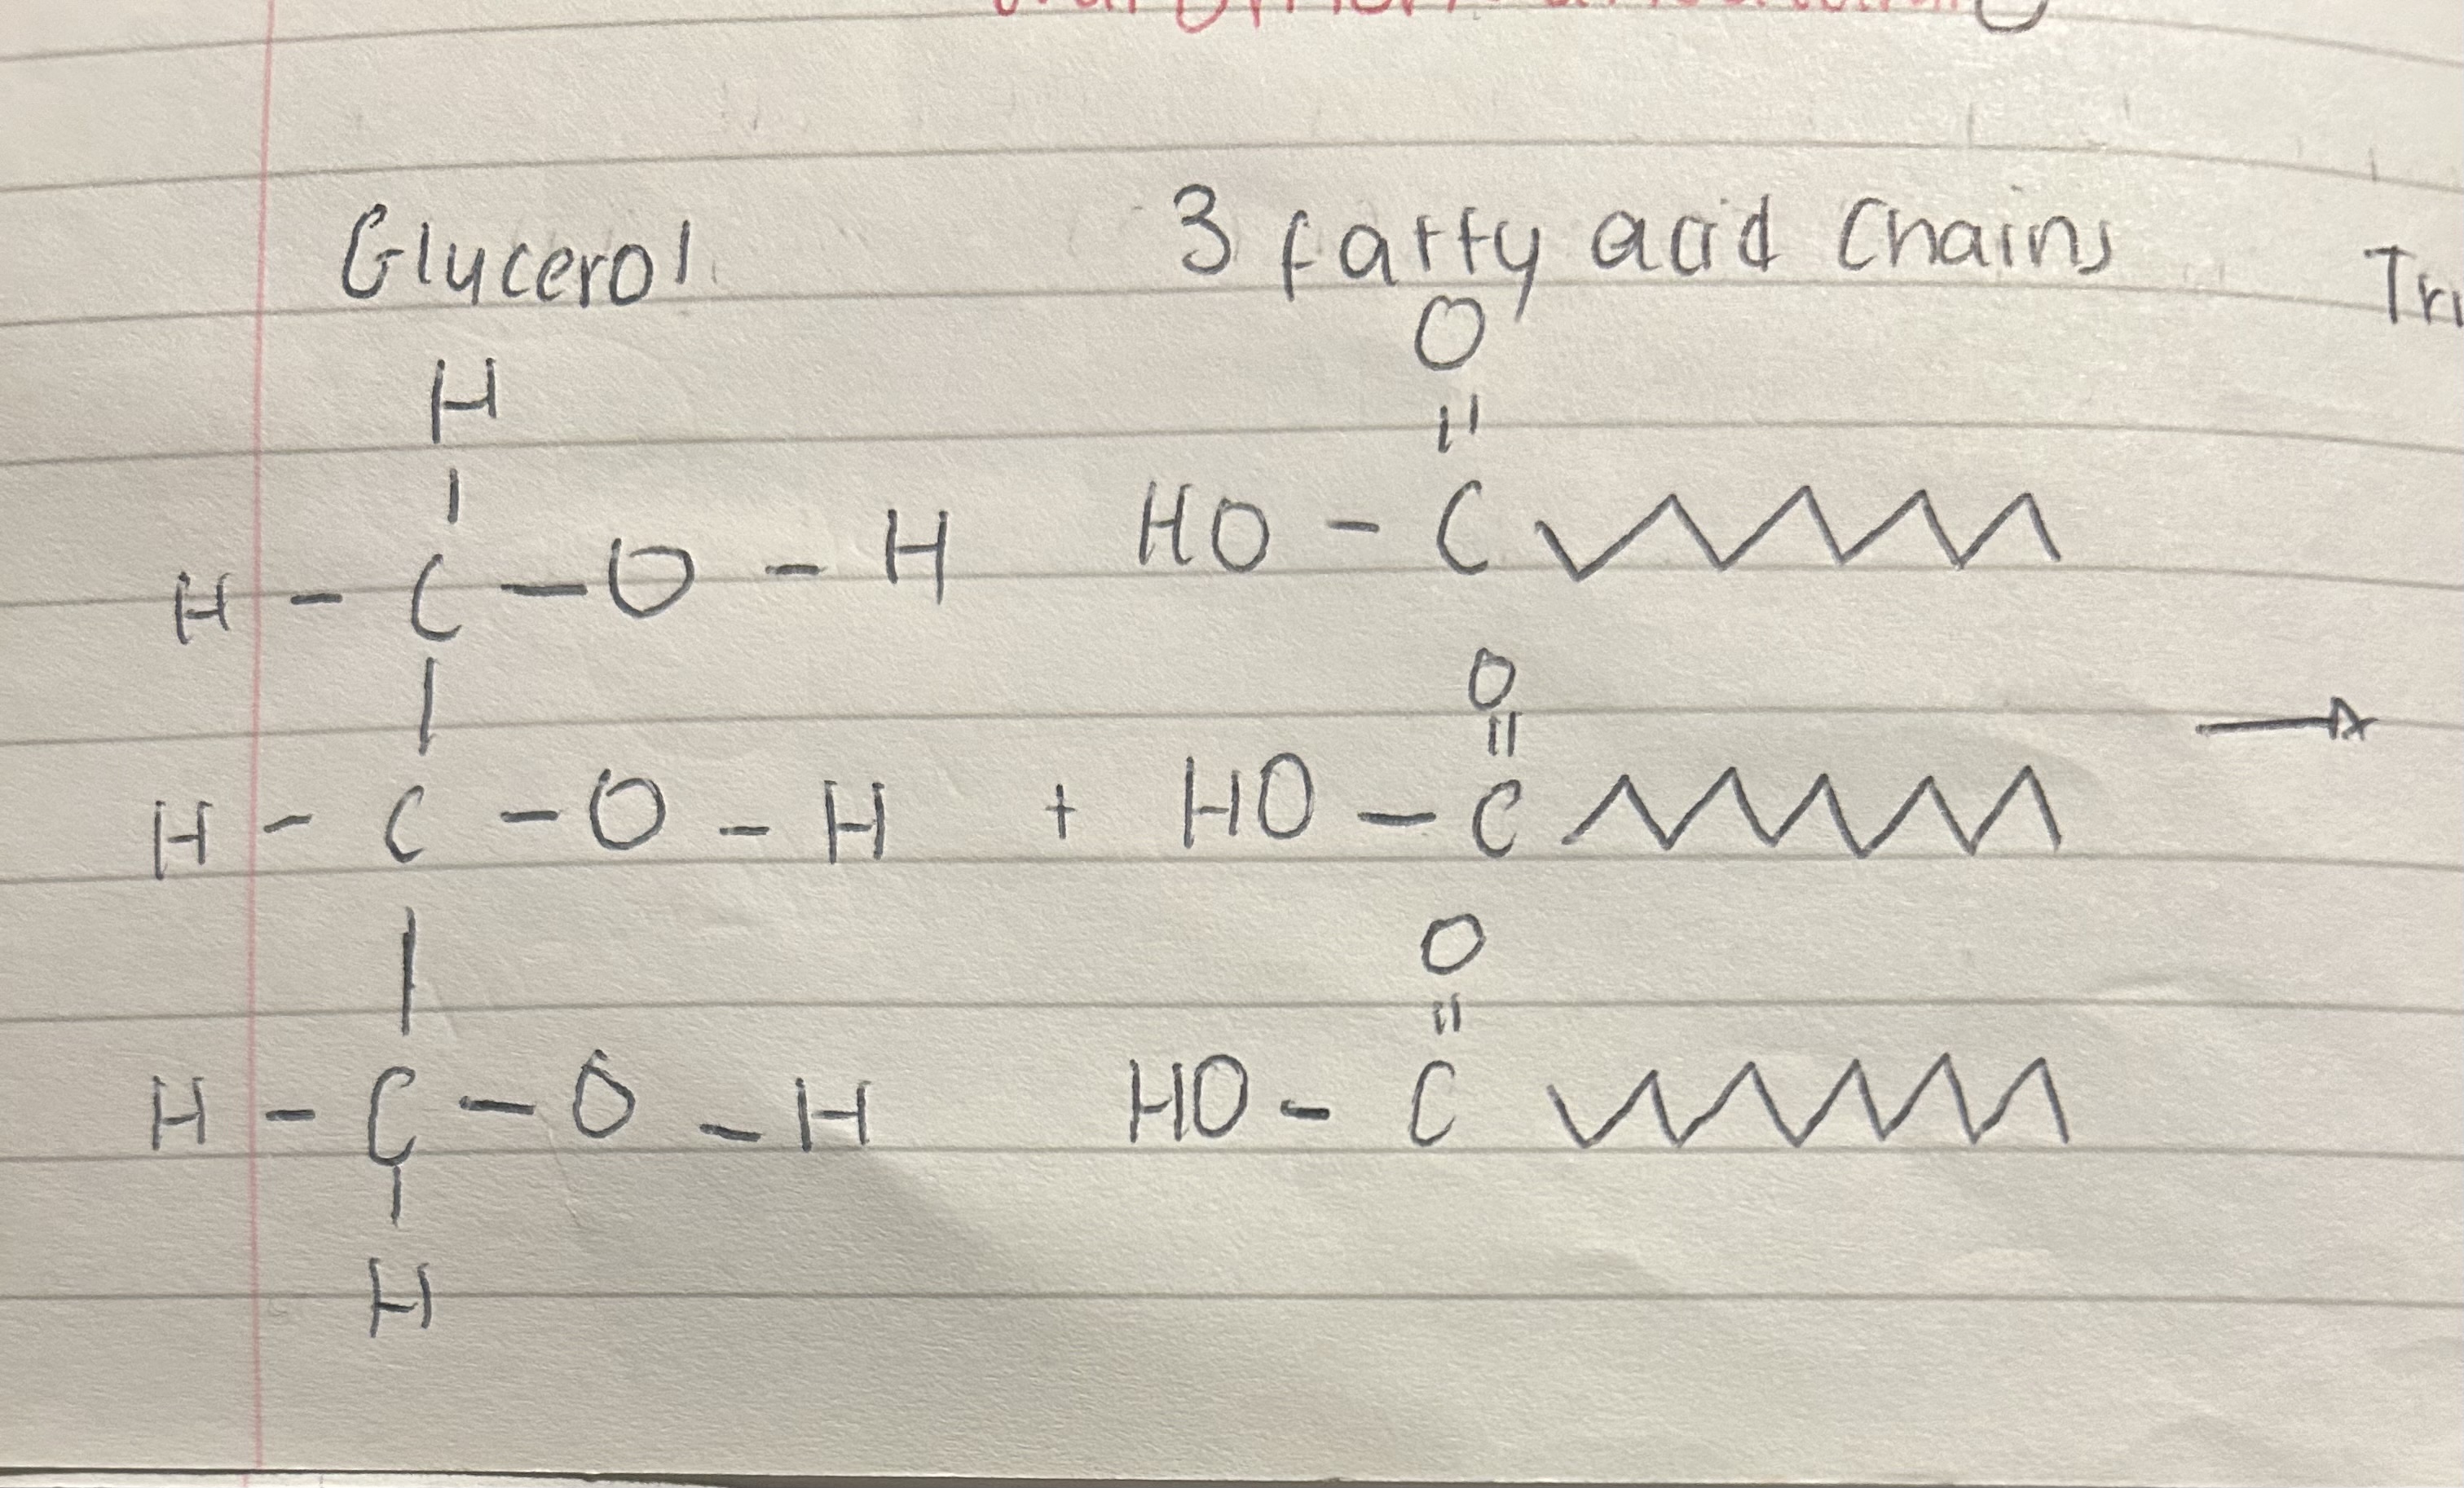 Glycerol 3 fatty acid Chains
O
H
||
HO - C
H - C - O - H
O
||
H - C - O - H + HO - C →
O
||
H - C - O - H HO - C
H